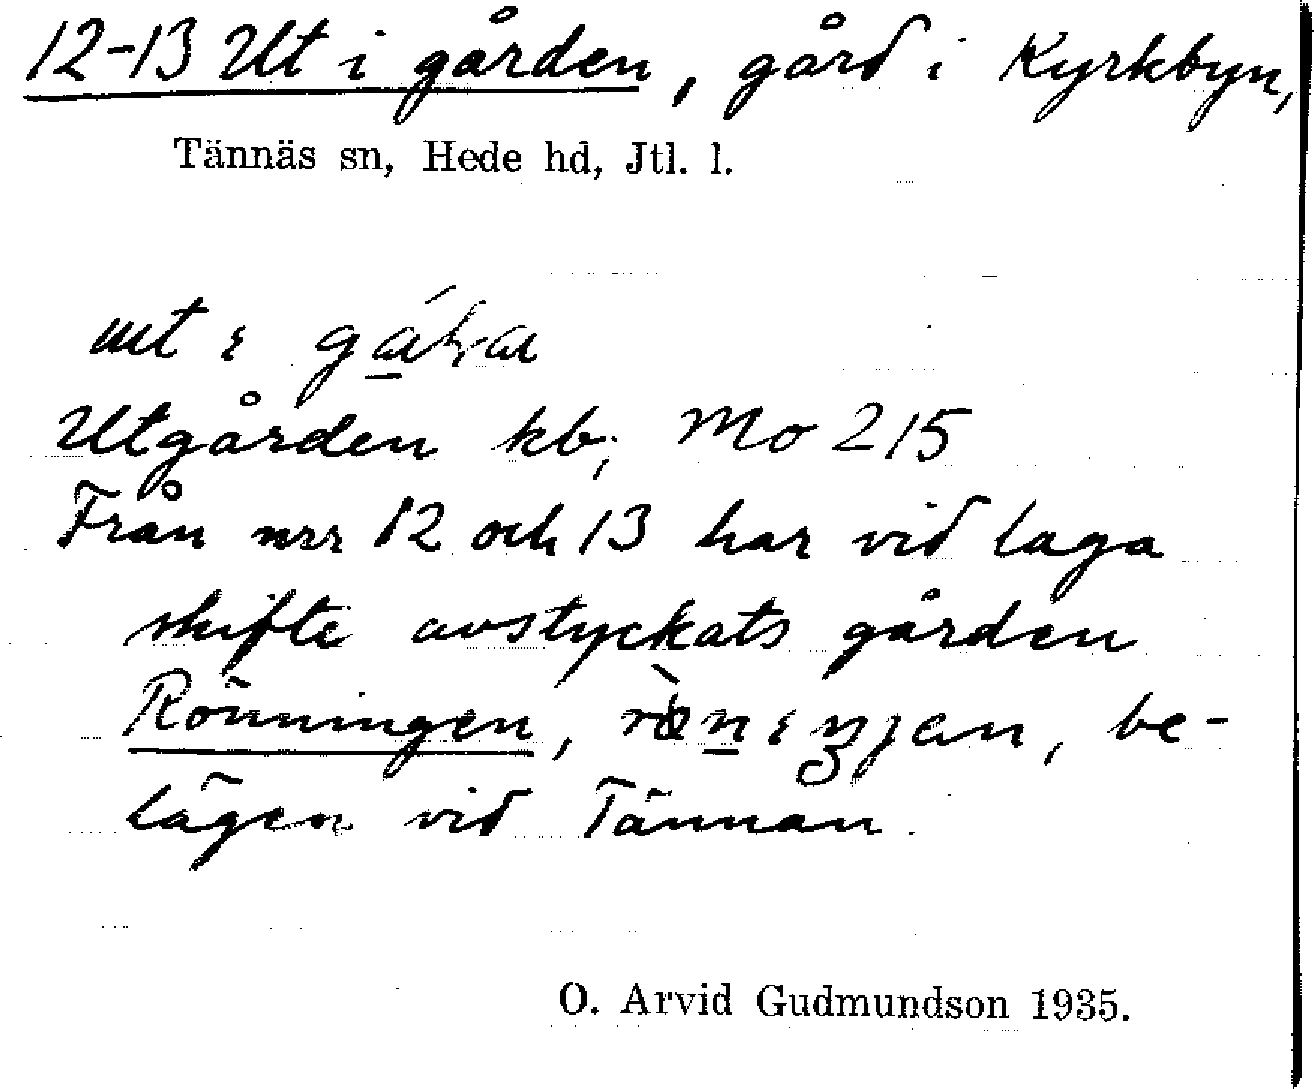 12-13 Ut i gården, gård i Kyrkbyn,
Tännäs sn, Hede hd, Jtl. l.
ut i
Utgården kb; Mo 215
Från nrr 12 och 13 har vid laga
skifte avstyckats gården
Rönningen, be-
lägen vid Tännån.
O. Arvid Gudmundson 1935.